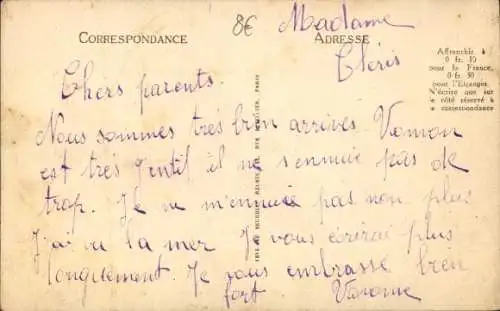 8€
Madame
CORRESPONDANCE
ADRESSE
Cléris
Affranchir à
0 fr. 10
pour la France,
0 fr. 30
pour l'Etranger.
N'écrire que sur
le côté réservé à
la correspondance
Chers parents.
Nous sommes tres bien arrivés
est très gentil il ne s'ennuie pas de
trop. Je ne m'ennuie pas non plus
j'ai vu la mer Je vous écrirai plus
longuement. Je vous embrasse bien
fort